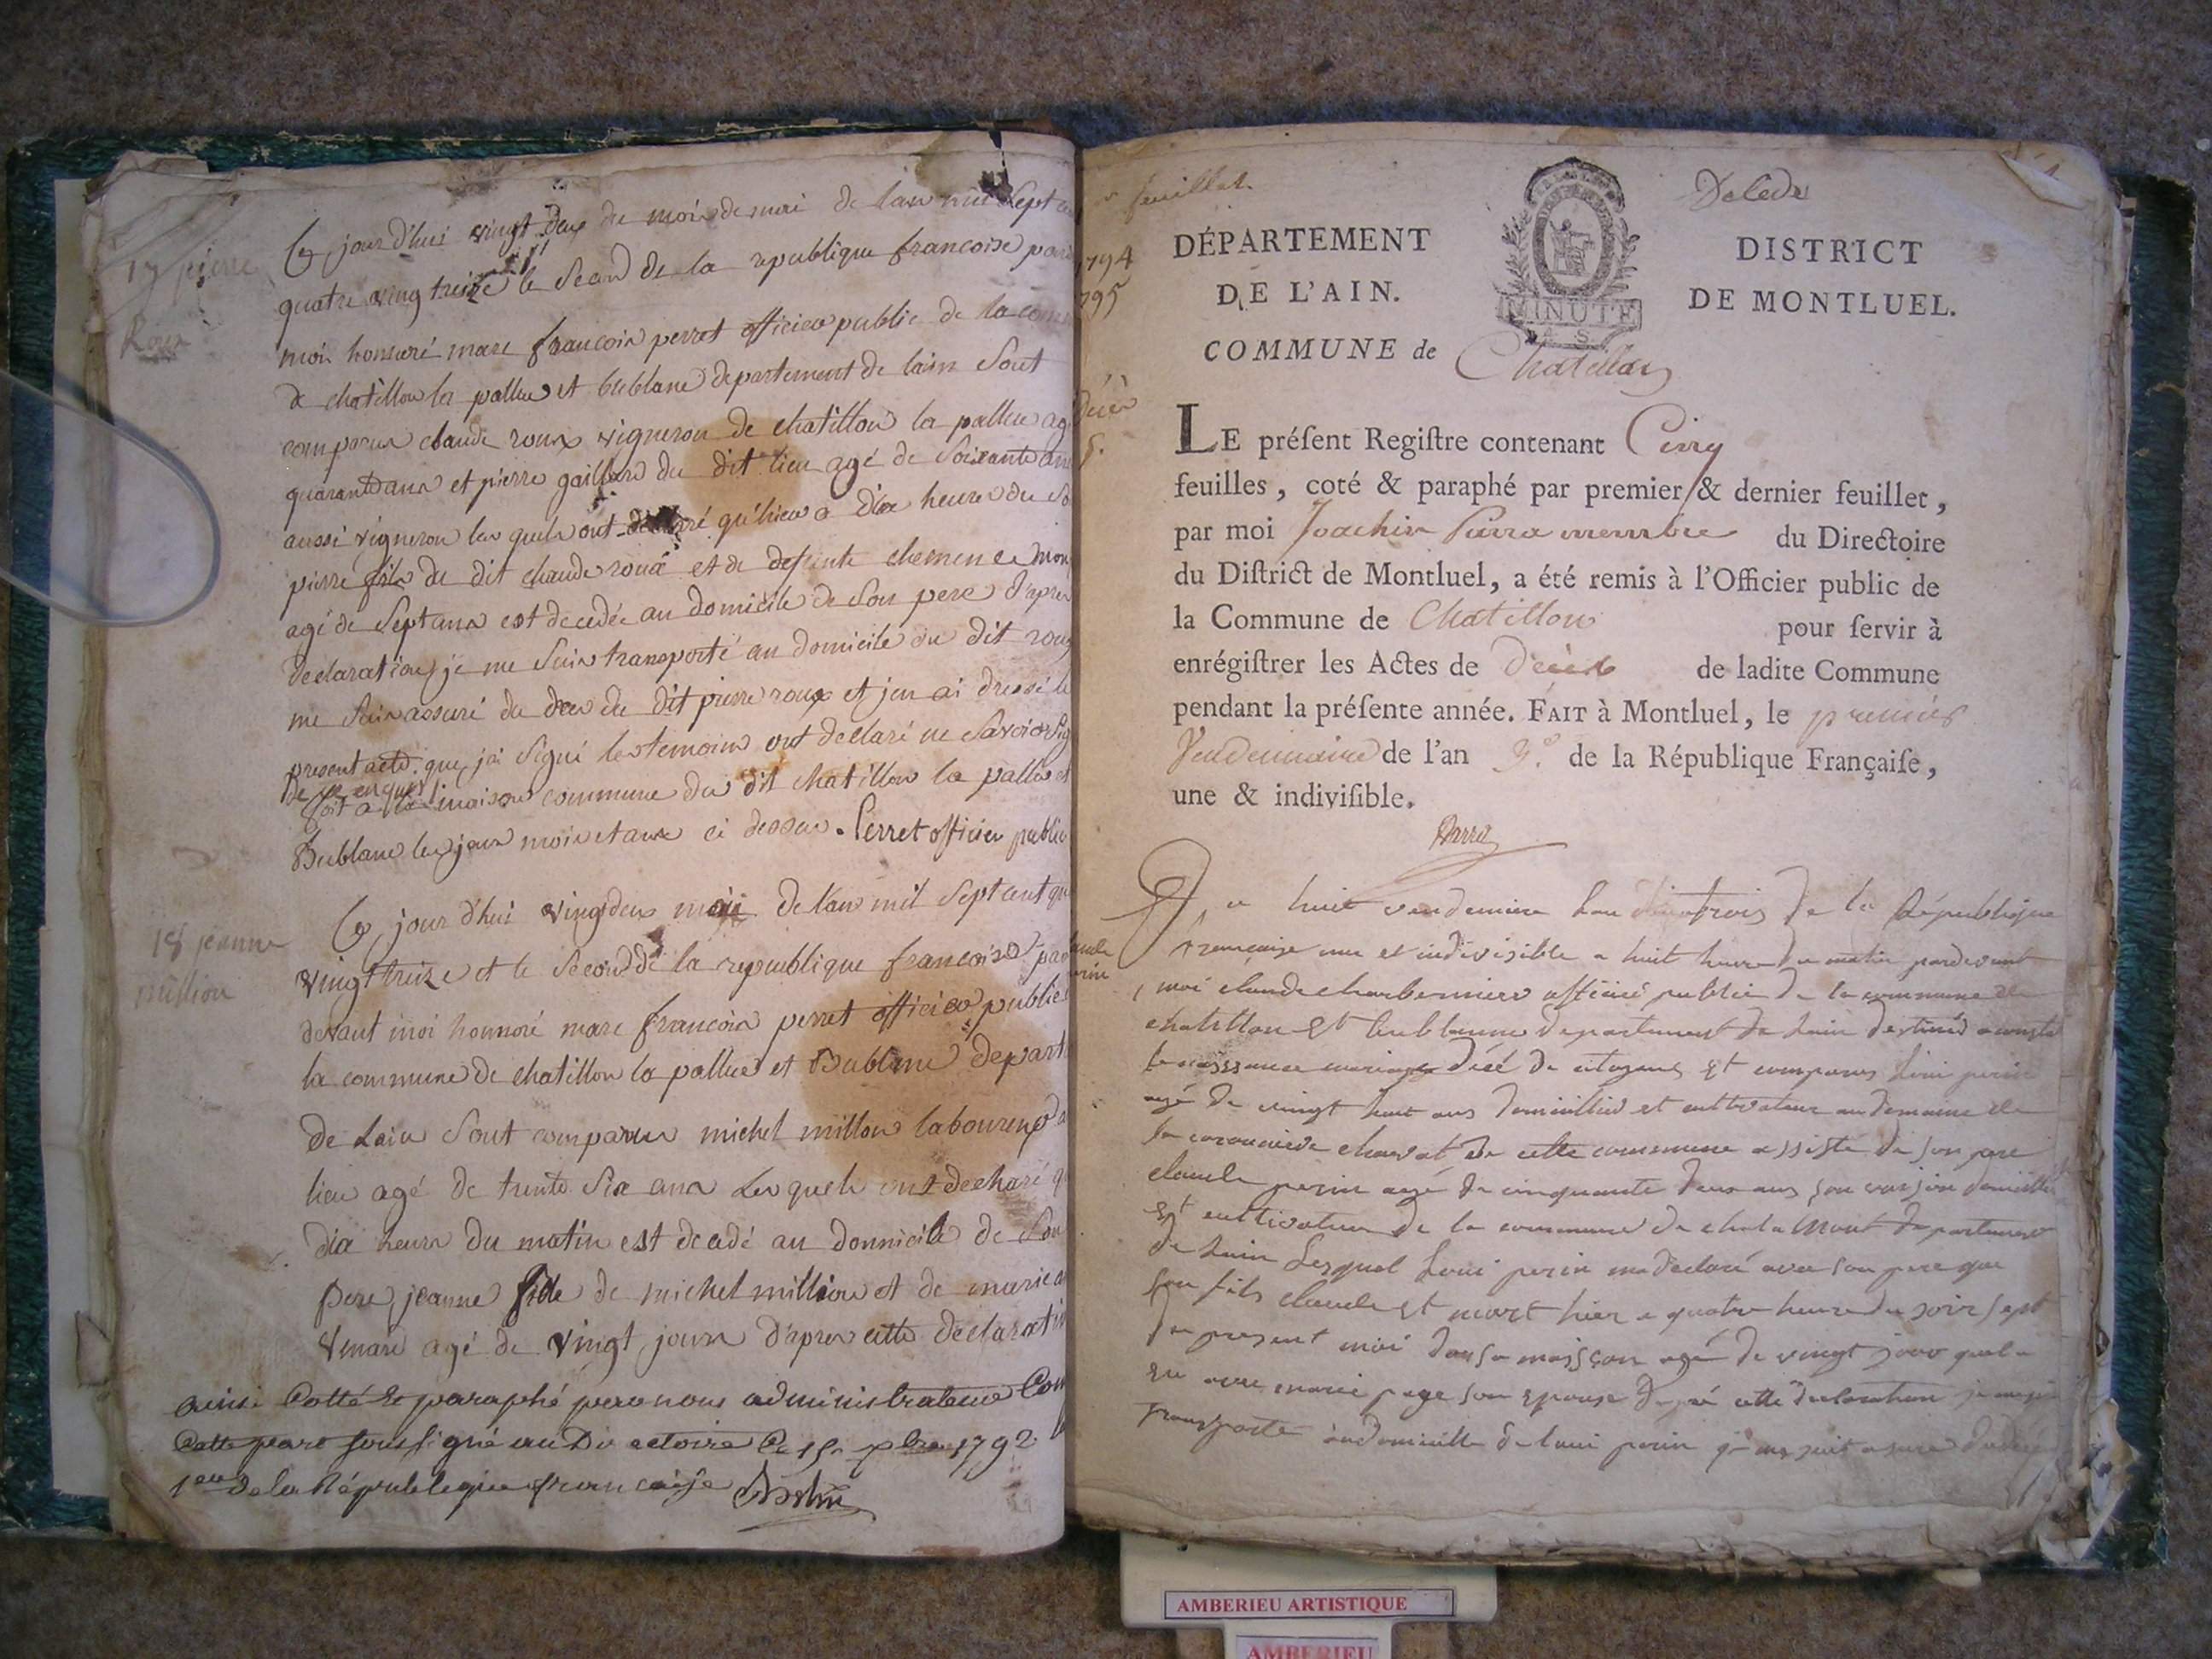 17 pierre
Roux
Ce jour d'hui vingt deux du mois de mai de l'an mil sept
quatre ving treize le second de la republique francoise
moi honnoré marc francois perret officier public de la
de chatillon la pallue et bublane departement de lain sont
comparus claude roux vigneron de chatillon la pallue
quarante ans et pierre gaillard du dit lieu agé de soixante ans
aussi vigneron les quels ont declaré qu'hier a dix heures du
pierre fils du dit claude roux et de defunte
agé de sept ans est decedée au domicile de son pere d'apres
declaration je me suis transporté au domicile du dit roux
me suis assuré du deces du dit pierre roux et jen ai dressé le
present acte que j'ai signé les temoins ont declaré ne savoir
de ce enquis
fait a la maison commune du dit chatillon la pallue et
Bublane les jour mois et ans ci dessus. Perret officier public
18 jeanne
million
Ce jour d'hui vingt deux mai de l'an mil sept cent
vingt treize et le second de la republique francoise par
devant moi honnoré marc francois perret officier public
la commune de chatillon la pallue et Bublane
de Lain sont comparus michel million laboureur
lieu agé de trente six ans Les quels ont declaré
dix heures du matin est decedé au domicile de son
pere jeanne fille de michel million et de marie
agé de vingt jours d'apres cette declaration
ainsi Cotté et paraphé par nous administrateur
Cotte pare soussigné au Directoire Ce 15 xbre 1792
1er de la République francaise
feuillet
Deledes
1794
1795
DÉPARTEMENT
DE L'AIN.
MINUTE
DISTRICT
DE MONTLUEL.
COMMUNE de Chatillon
LE préſent Regiſtre contenant Cinq
feuilles, coté & paraphé par premier & dernier feuillet,
par moi Joachin membre du Directoire
du Diſtrict de Montluel, a été remis à l'Officier public de
la Commune de Chatillon pour ſervir à
enrégiſtrer les Actes de décès de ladite Commune
pendant la préſente année. FAIT à Montluel, le premier
Vendemiaire de l'an 3e. de la République Françaiſe,
une & indiviſible.
huit vendemiere lan trois de la République
francaise une et indivisible a huit heure du matin pardevant
moi claude charbonnier officié public de la commune de
chatillon et bublanne departement de lain
naissance mariage décé de citoyens et comparus Loui perin
agé de vingt huit ans domicillié et cultivateur au domaine de
de cette commune assisté de son pere
claude perin agé de cinquante deux ans
et cultivateur de la commune de chalamont departement
de lain Lesquel Loui perin ma déclaré avec son pere que
son fils claude et mort hier a quatre heure du soir sept
du present moi dans sa maisson agé de vingt jour
eu avec marie page son epouse cette declaration
transporté au domicille de loui perin
AMBERIEU ARTISTIQUE
AMBERIEU